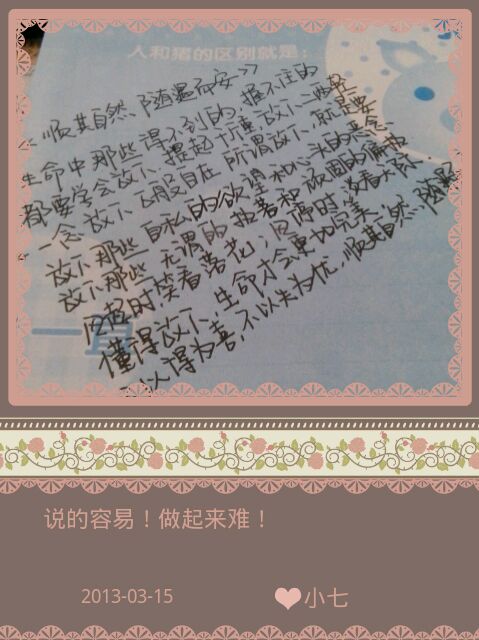 人和猪的区别就是:
《顺其自然 随遇而安》
生命中那些得不到的,握不住的
都要学会放下,提起千斤重,放下二两轻
一念放下,万般自在,所谓放下,就是要
放下那些自私的欲望和心头的恶念
放下那些无谓的执著和顽固的偏执
风起时笑看落花,风停时淡看天际.
懂得放下,生命才会更加完美,
不以得为喜,不以失为忧,顺其自然,随遇
说的容易!做起来难!
2013-03-15
小七